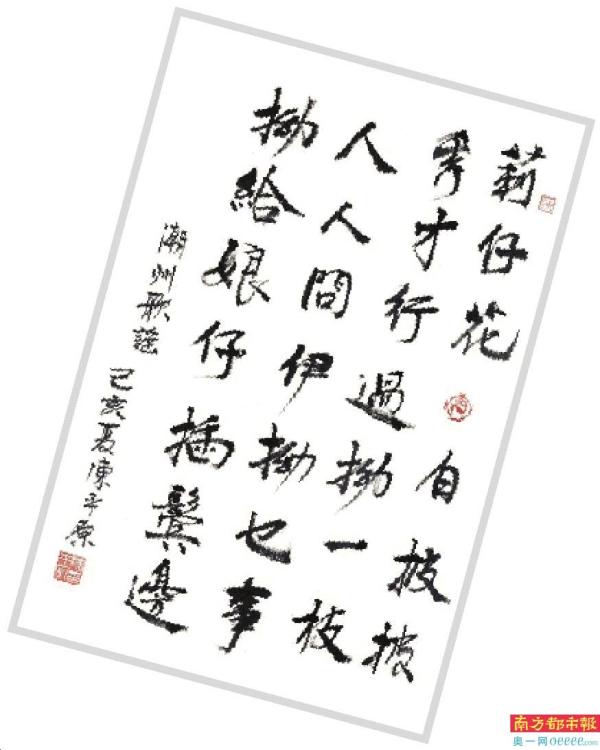 莉仔花 自披披
秀才行過拗一枝
人人問伊拗乜事
拗給娘仔插鬢邊
潮州歌謠 己亥夏陳平原
南方都市報
奥一网oeeee.com